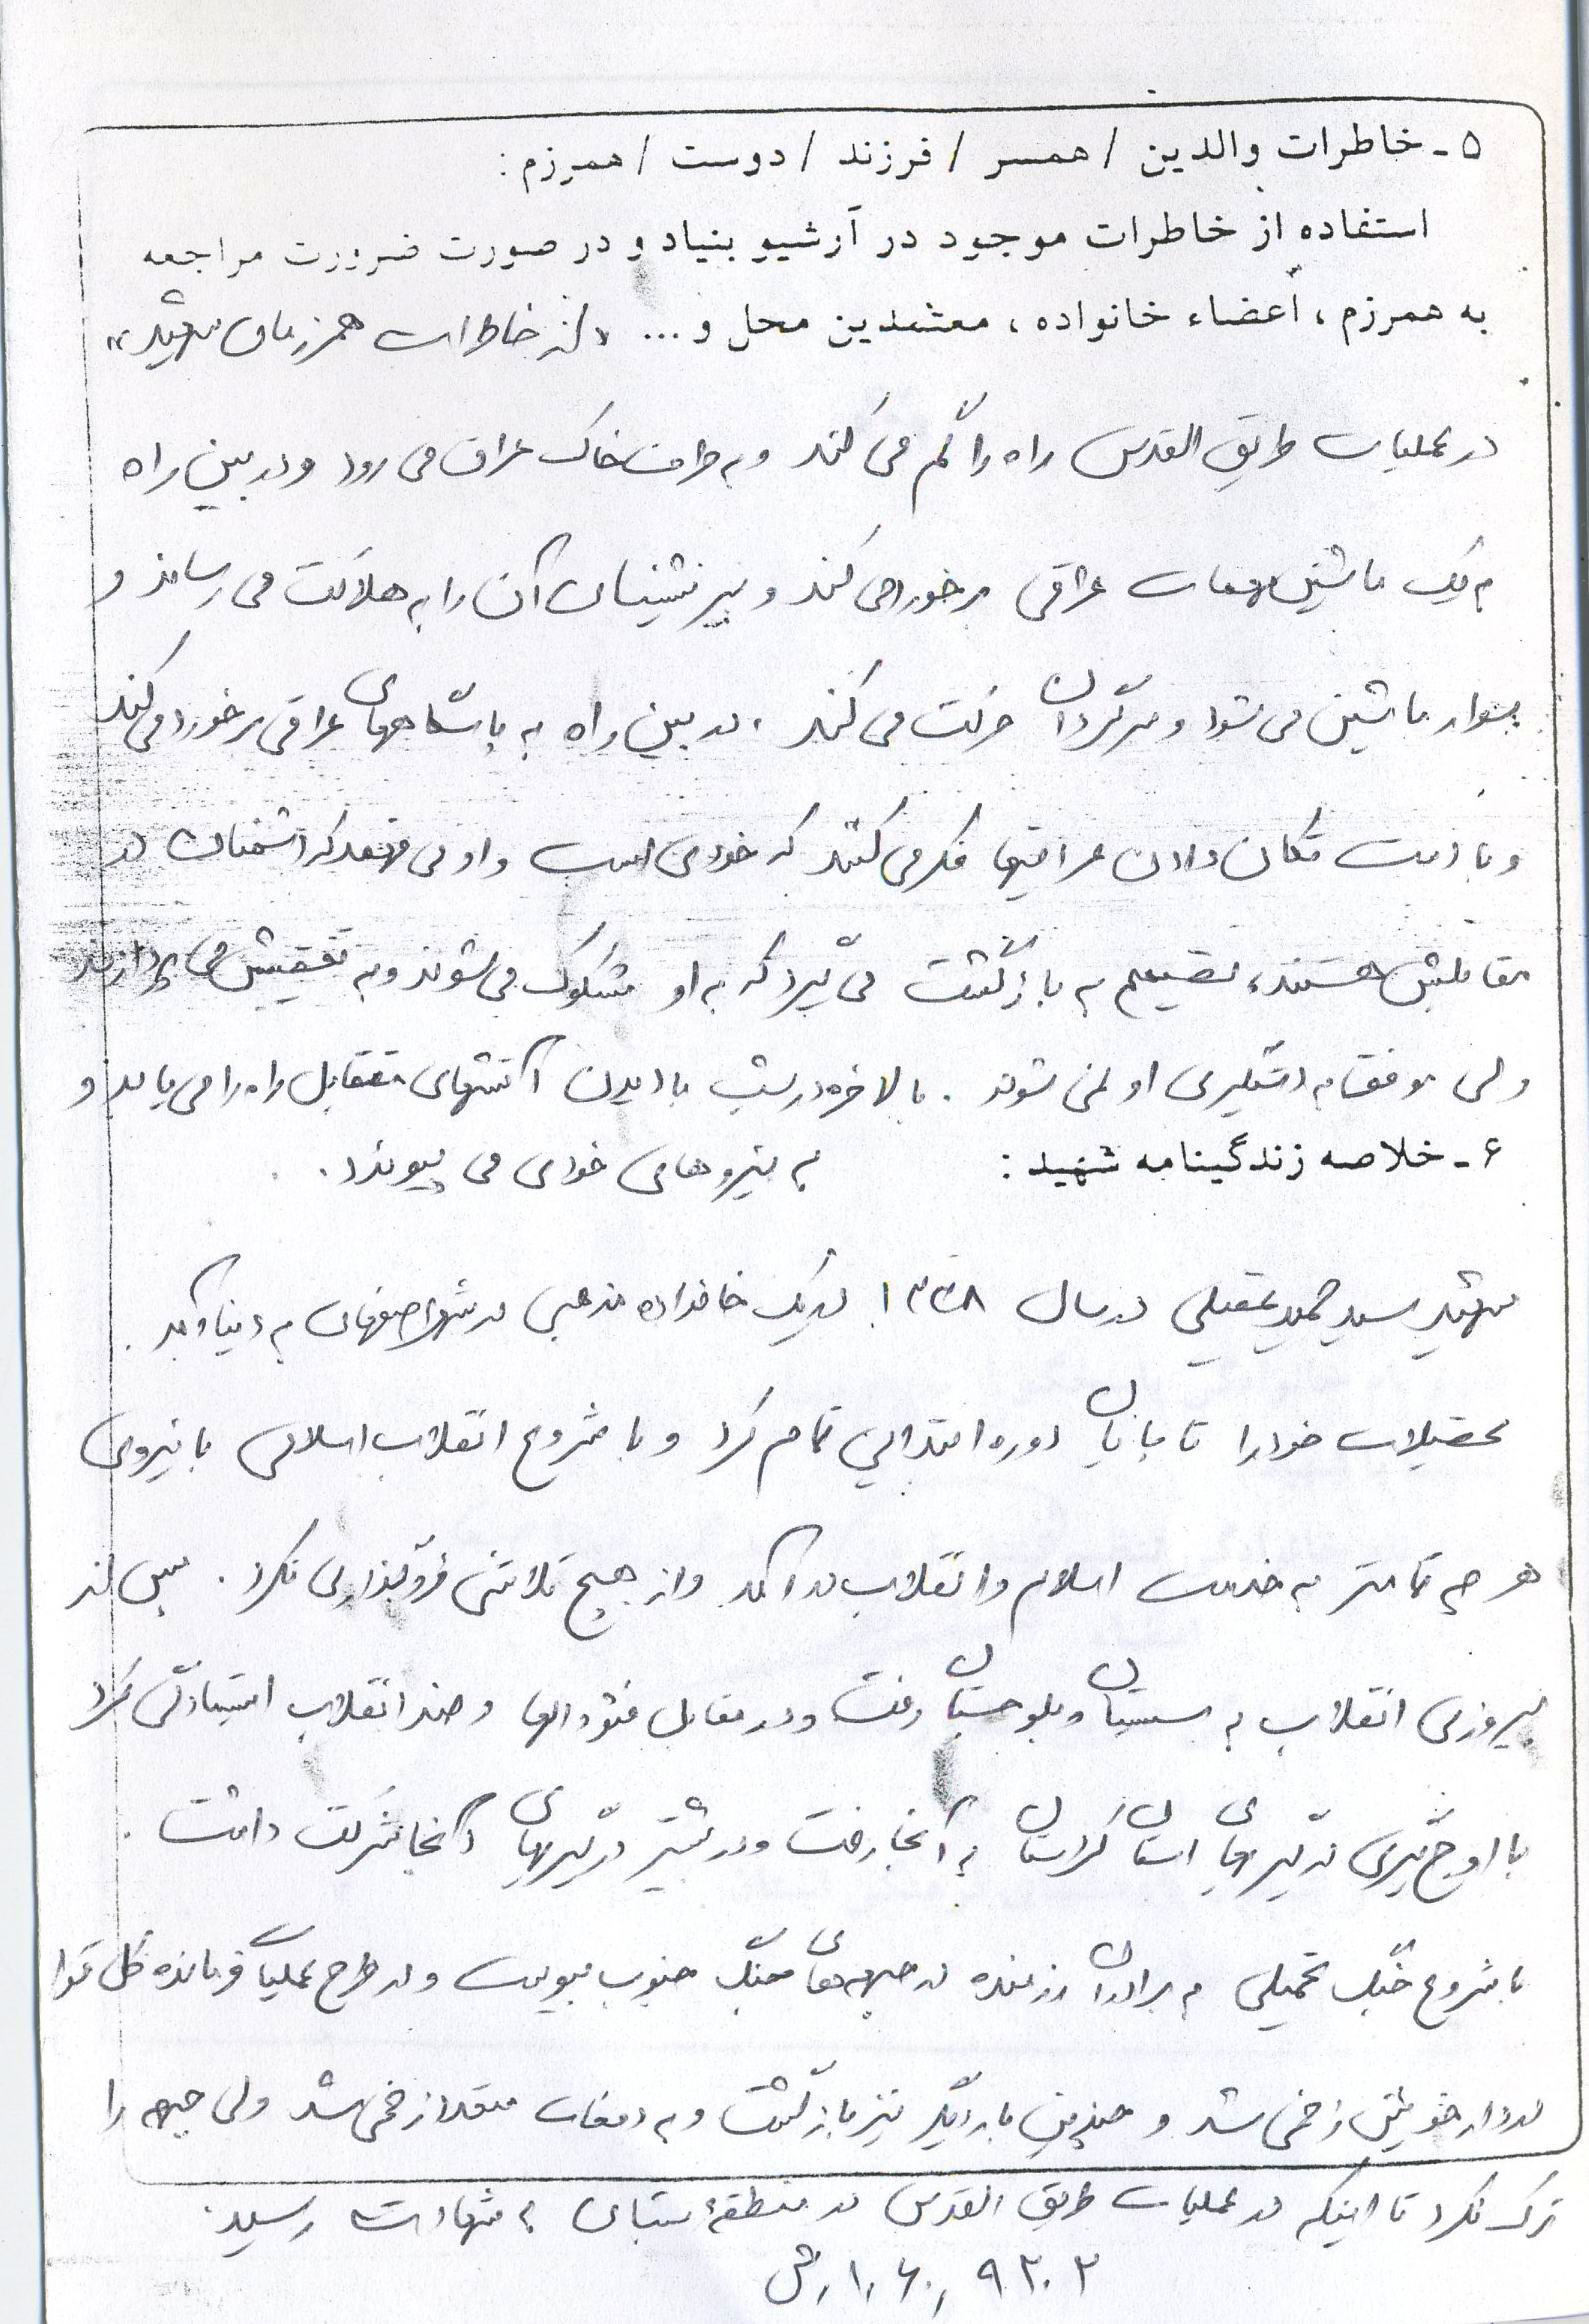 ۵ - خاطرات والدین / همسر / فرزند / دوست / همرزم :
استفاده از خاطرات موجود در آرشیو بنیاد و در صورت ضرورت مراجعه
به همرزم ، اعضاء خانواده ، معتمدین محل و ... «از خاطرات همرزمان شهید»
در عملیات طریق القدس راه را گم می کند و به طرف خاک عراق می رود و در بین راه
به یک ماشین مهمات عراقی برخورد می کند و سرنشینان آن را به هلاکت می رساند و
سوار ماشین می شود و سرگردان حرکت می کند ، در بین راه به پاسگاههای عراقی برخورد می کند
و با دست تکان دادن عراقیها فکر می کنند که خودی است و او می فهمد که دشمنان در
مقابلش هستند ، تصمیم به بازگشت می گیرد که به او مشکوک می شوند و به تفتیش می پردازند
ولی موفق به دستگیری او نمی شوند . بالاخره در شب با دیدن آتشهای متقابل راه را می یابد و
به نیروهای خودی می پیوندد .
۶ - خلاصه زندگینامه شهید :
شهید سید حمید عقیلی در سال ۱۳۳۸ در یک خانواده مذهبی در شهر اصفهان به دنیا آمد .
تحصیلات خود را تا پایان دوره ابتدایی تمام کرد و با شروع انقلاب اسلامی با نیروی
هر چه تمامتر به خدمت اسلام و انقلاب در آمد و از هیچ تلاشی فروگذاری نکرد . پس از
پیروزی انقلاب به سیستان و بلوچستان رفت و در مقابل فئودالها و ضد انقلاب ایستادگی کرد
با اوج گیری درگیریهای استان کردستان به آنجا رفت و در بیشتر درگیریهای آنجا شرکت داشت .
با شروع جنگ تحمیلی به برادران رزمنده در جبهه های جنگ جنوب پیوست و در طرح عملیات فرمانده کل قوا
در دارخوئین زخمی شد و چندین بار دیگر نیز بازگشت و به دفعات متعدد زخمی شد ولی جبهه را
ترک نکرد تا اینکه در عملیات طریق القدس در منطقه بستان به شهادت رسید .